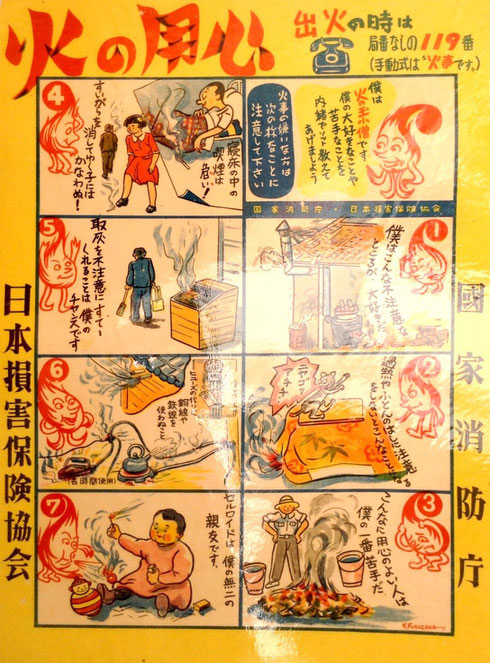 火の用心
出火の時は
局番なしの119番
(手動式は"火事"です。)
僕は
火の子僧です。
僕の大好きなことや
苦手なことを
内緒でソット教えて
あげましょう
火事の嫌いな方は
次の様なことに
注意して下さい
国家消防庁・日本損害保険協会
1
僕はこんな不注意な
ところが、大好きだ
2
過熱やふとんのはしに注意
をしないとこんなことになる
ニヤゴー
アチチ
3
こんなに用心のよい人は
僕の一番苦手だ
K.FUKAZAWA
4
すいがらを消してゆく子には
かなわぬ!
寝床の中の
喫煙は
危い!
5
取灰を不注意にすてゝ
くれることは僕の
チャンスです
6
ヒューズの代りに
銅線や
鉄線を
使わぬこと
(長時間使用)
7
セルロイドは僕の無二の
親友です、
國家消防庁
日本損害保険協会